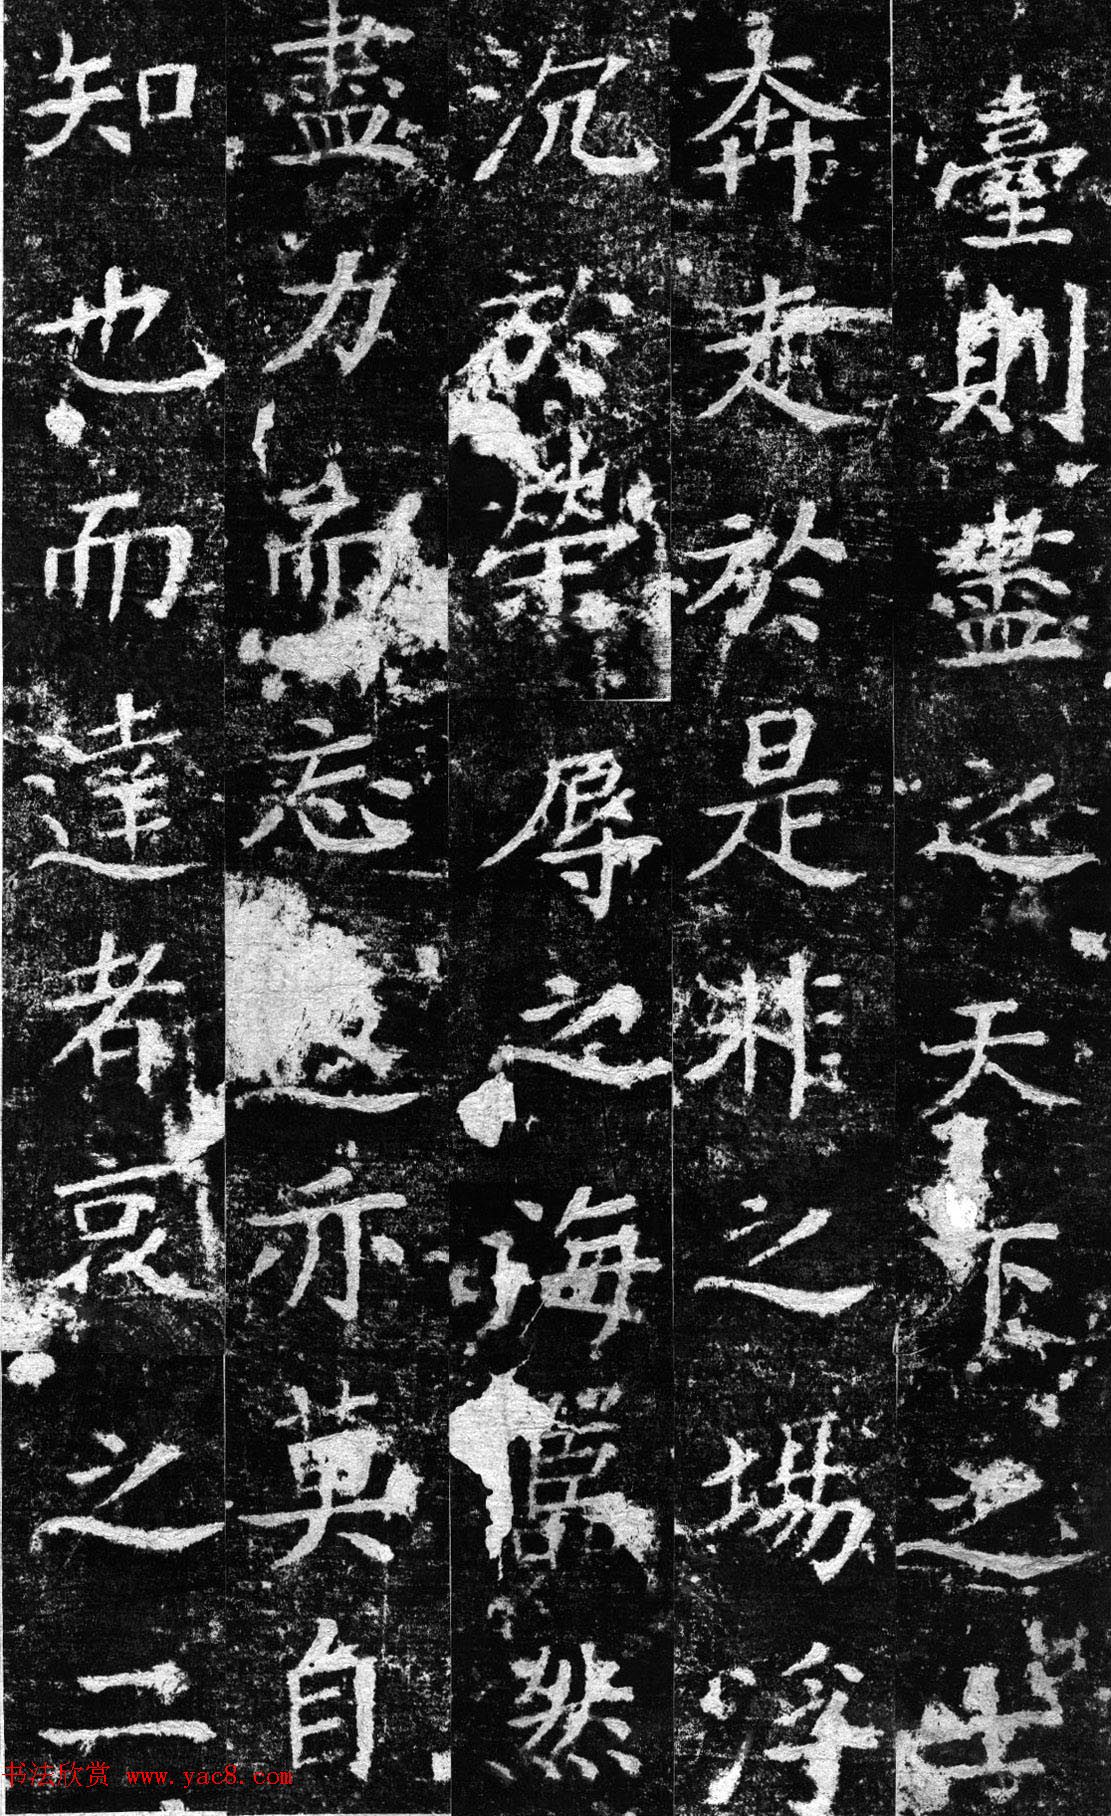 臺則盡之天下之士
奔走於是非之場浮
沉於榮辱之海嚣然
盡力而忘返亦莫自
知也而達者哀之二
书法欣赏 www.yac8.com